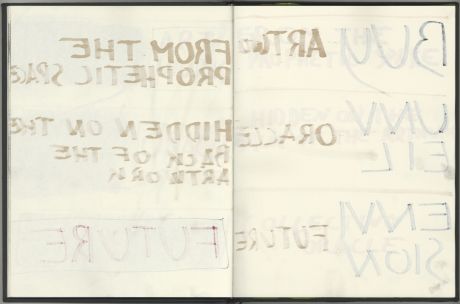 BUY
ARTWORK
FROM THE
PROPHETIC SPACE
UNV
EIL
ORACLE
HIDDEN ON THE
BACK OF THE
ARTWORK
ENVI
SION
FUTURE
FUTURE